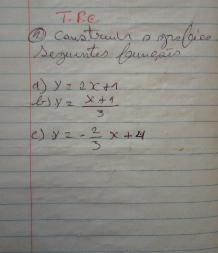 T.P.C.
① Construir o gráfico
seguintes funções
a) y = 2x+1
b) y = x+1/3
c) y = -2/3 x+4